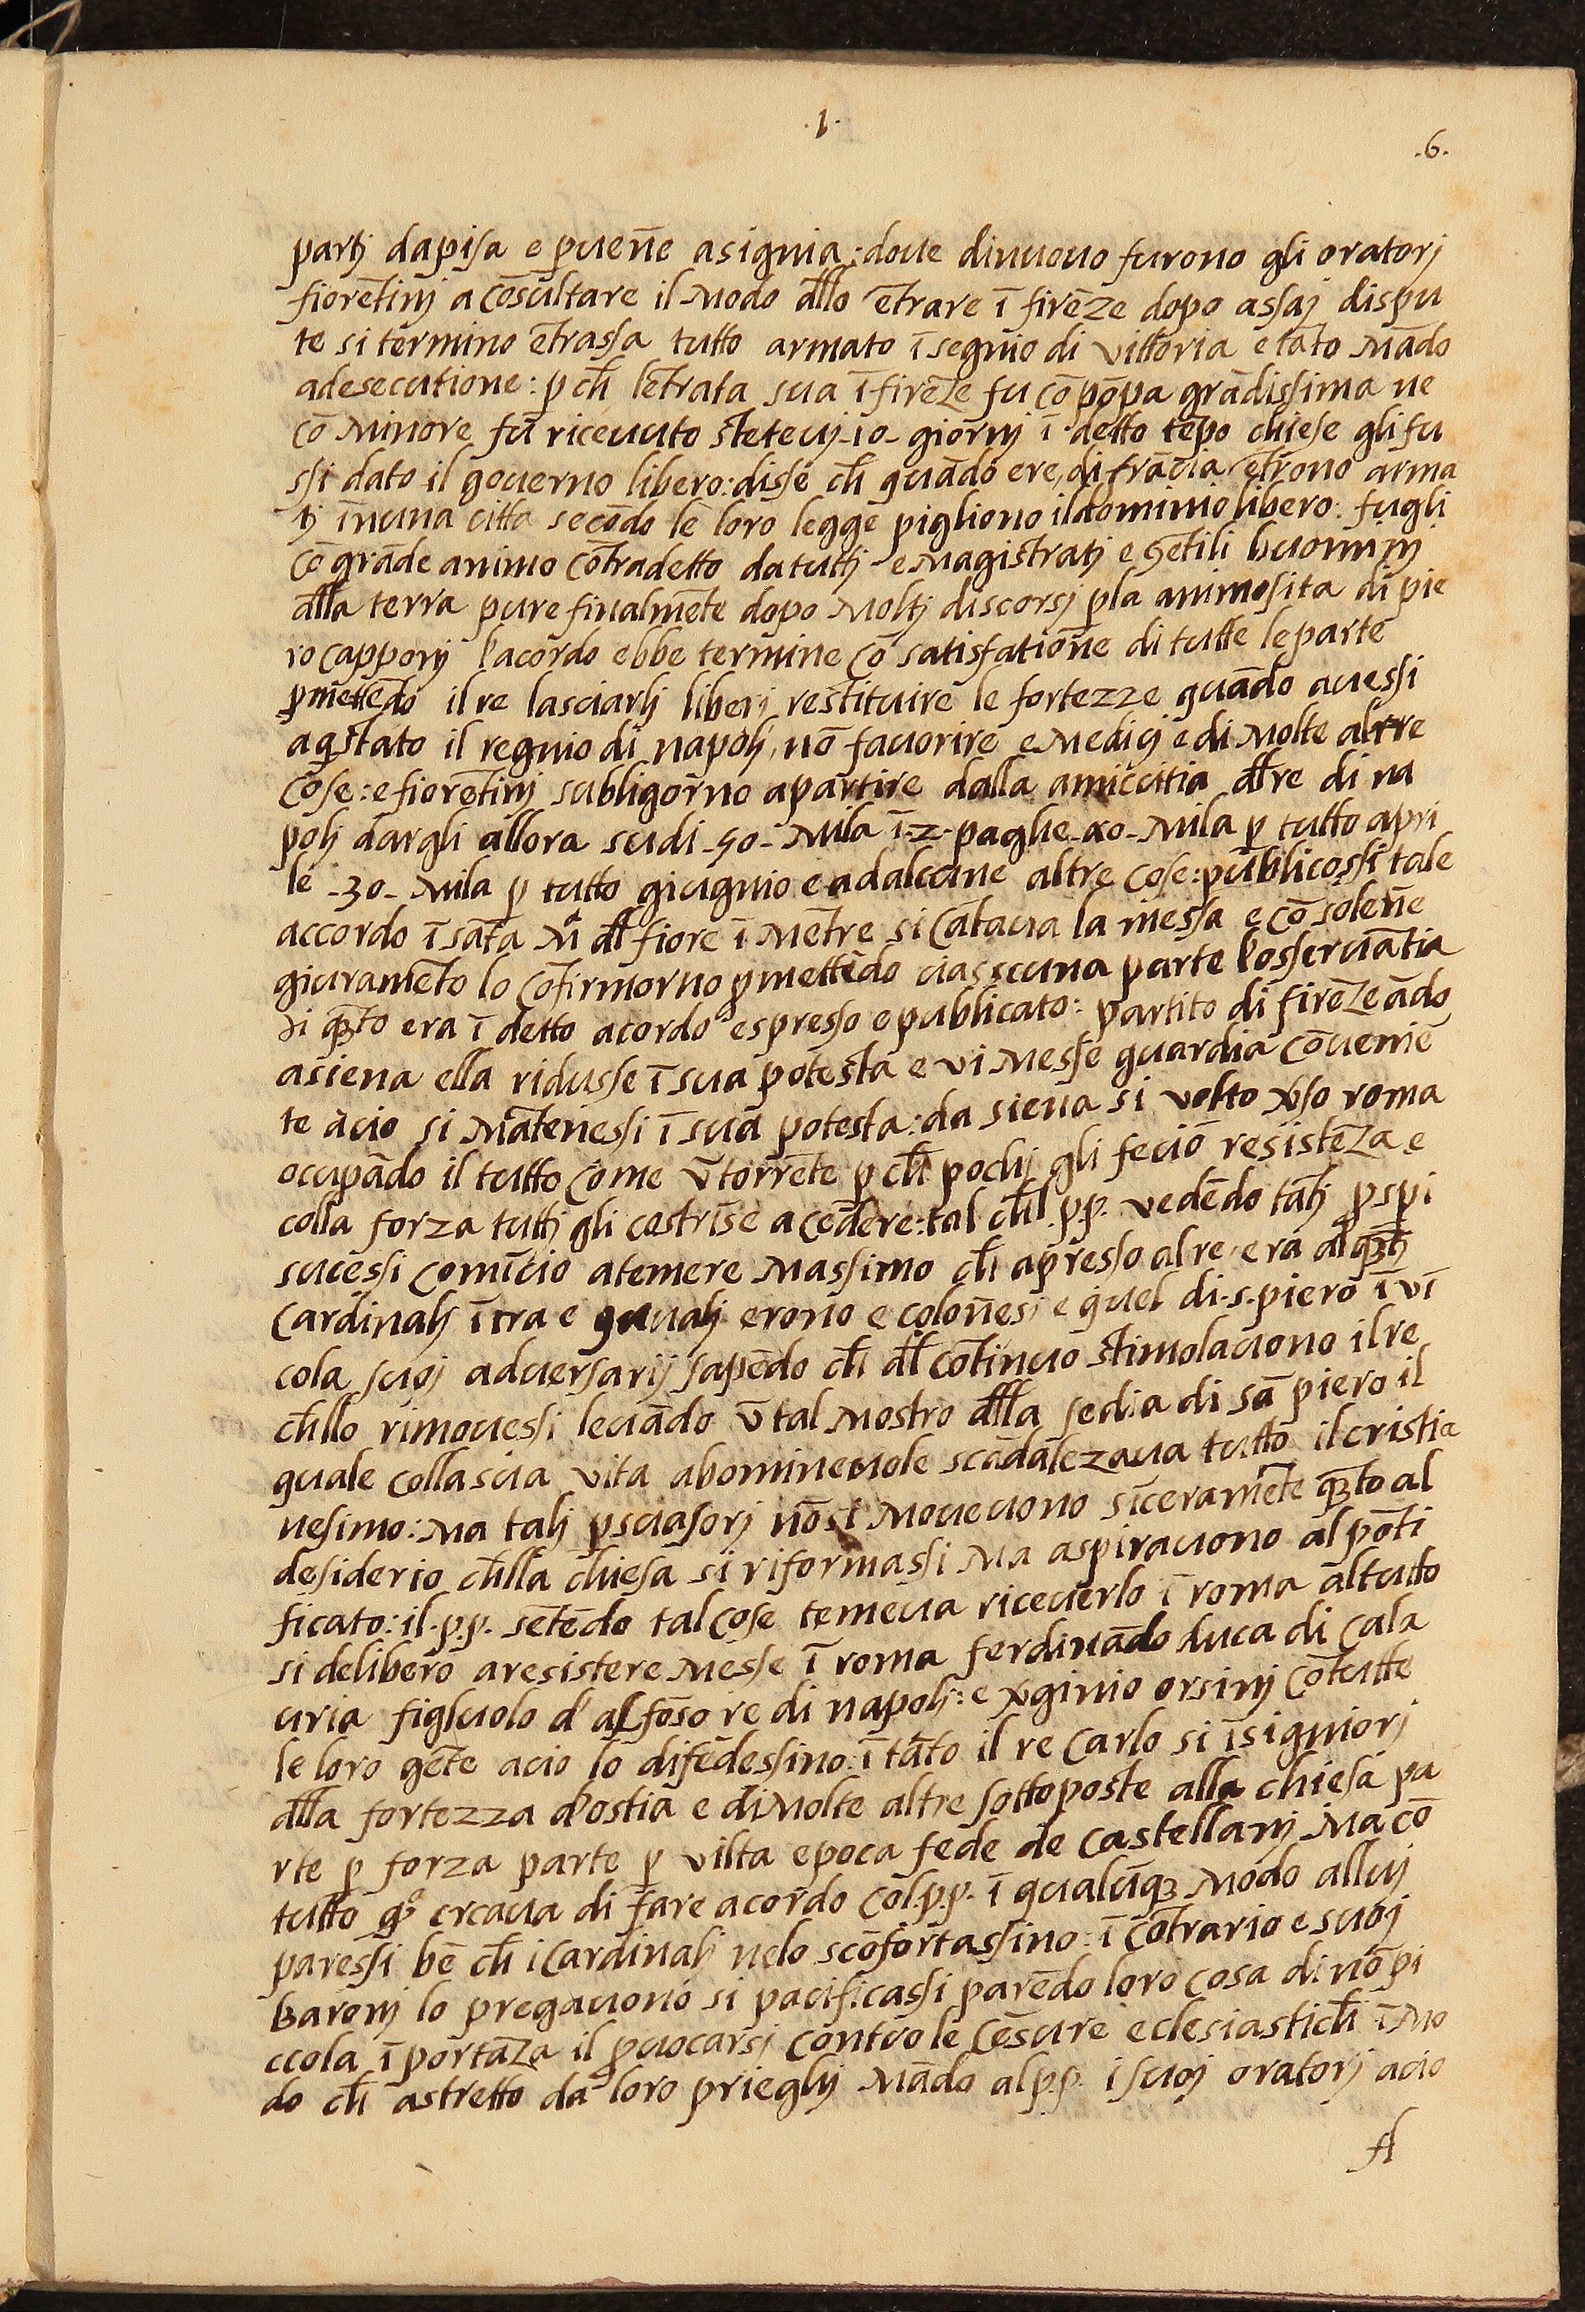 .1.
.6.
partj dapisa e pueñe asignia : doue dinuouo furono gli oratorj
fiorētinj a cōsultare il Modo dllo ētrare ī firēze dopo assaj dispu
te si termino ētrassa tutto armato ī segnio di vittoria e tāto Mādo
adesecutione : p ch lētrata sua ī firēze fu cō pōpa grādissima ne
cō Minore fu riceuuto steteuj -10- giornj ī detto tēpo chiese gli fu
ssi dato il gouerno libero : disse ch quādo e re di frācia ētrono arma
tj īnuna citta secōdo le loro legge pigliono ildominio libero : fugli
cō grāde animo cōtradetto da tuttj e Magistratj e gētili huominj
dlla terra pure finalmēte dopo Moltj discorsj pla animosita di pie
ro capponj l'acordo ebbe termine cō satisfatione di tutte le parte
pmettēdo il re lasciarlj liberj restituire le fortezze quādo auessi
aqstato il regnio di napolj nō fauorire e Medicj e di Molte altre
cose : e fiorētinj subligorno a partire dalla amiccitia dl re di na
polj dargli allora scudi -50- Mila ī -2- paghe -40- Mila p tutto apri
le -30- Mila p tutto giugnio e adalcune altre cose : publicossi tale
accordo ī sāta Mª dl fiore ī Mētre si cātaua la messa e cō soleñe
giuramēto lo cōfirmorno pmettēdo ciascuna parte l'osseruātia
di qto era ī detto acordo espresso e publicato : partito di firēze ādo
asiena ella ridusse ī sua potesta e vi Messe guardia cōueniē
te acio si Mātenessi ī sua potesta : da siena si volto vso roma
ocupādo il tutto come ū torrēte p ch pochj gli feciō resistēza e
colla forza tuttj gli costrīse a cedere : tal chl .p.p. vedēdo tātj pspi
sucessi comīcio a temere Massimo ch apresso al re era alqtj
Cardinalj ītra e qualj erono e coloñesj e quel di .s. piero ī vī
cola suoj aduersarij sapēdo ch dl cōtinuo stimolauono il re
chllo rimouessi leuādo ū tal Mostro dlla sedia di sā piero il
quale colla sua vita abomineuole scādalezaua tutto il cristia
nesimo : Ma talj psuasorj nō si Moueuono sīceramēte qto al
desiderio chlla chiesa si riformassi Ma aspirauono al pōti
ficato : il .p.p. sētēdo tal cose temeua riceuerlo ī roma al tutto
si delibero a resistere Messe ī roma ferdinādo duca di Cala
uria figluolo d'alfōso re di napolj : e vginio orsinj cō tutte
le loro gēte acio lo difēdessino : ī tāto il re Carlo si īsigniorj
dlla fortezza d'ostia e di Molte altre sottoposte alla chiesa pa
rte p forza parte p vilta e poca fede de castellanj Ma cō
tutto qº crcaua di fare acordo col .p.p. ī qualūq Modo alluj
paressi bē ch i Cardinalj nelo scōfortassino : ī cōtrario e suoj
Baronj lo pregauono si pacificassi parēdo loro cosa di nō pi
ccola ī portāza il puocarsj contro le cēsure eclesiastich ī Mo
do ch astretto da loro prieghj Mādo al p.p. i suoj oratorj acio
A